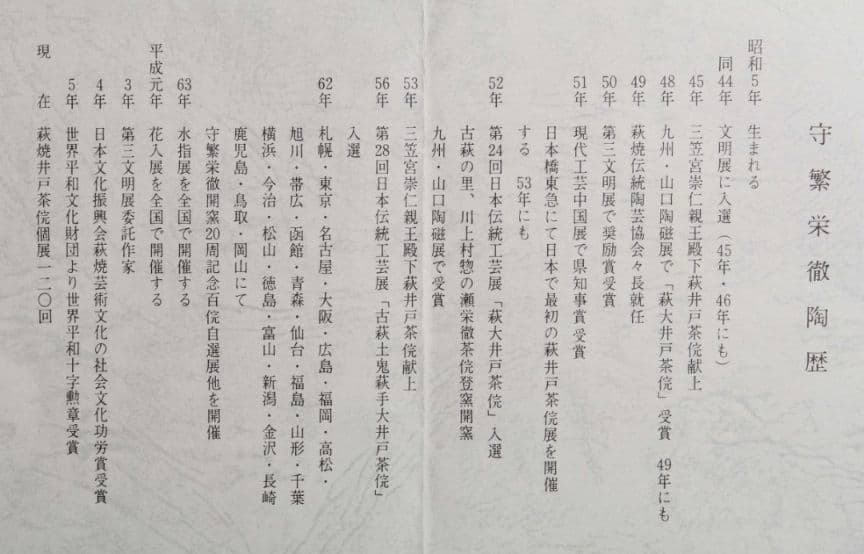 守繁栄徹陶歴
昭和5年 生まれる
同44年 文明展に入選(45年・46年にも)
45年 三笠宮崇仁親王殿下萩井戸茶碗献上
48年 九州・山口陶磁展で「萩大井戸茶碗」受賞 49年にも
49年 萩焼伝統陶芸協会々長就任
50年 第三文明展で奨励賞受賞
51年 現代工芸中国展で県知事賞受賞
日本橋東急にて日本で最初の萩井戸茶碗展を開催
する 53年にも
52年 第24回日本伝統工芸展「萩大井戸茶碗」入選
古萩の里、川上村惣の瀬栄徹茶碗登窯開窯
九州・山口陶磁展で受賞
53年 三笠宮崇仁親王殿下萩井戸茶碗献上
56年 第28回日本伝統工芸展「古萩土鬼萩手大井戸茶碗」
入選
62年 札幌・東京・名古屋・大阪・広島・福岡・高松・
旭川・帯広・函館・青森・仙台・福島・山形・千葉
横浜・今治・松山・徳島・富山・新潟・金沢・長崎
鹿児島・鳥取・岡山にて
守繁栄徹開窯20周年記念百碗自選展他を開催
63年 水指展を全国で開催する
平成元年 花入展を全国で開催する
3年 第三文明展委託作家
4年 日本文化振興会萩焼芸術文化の社会文化功労賞受賞
5年 世界平和文化財団より世界平和十字勲章受賞
現在 萩焼井戸茶碗個展一二〇回